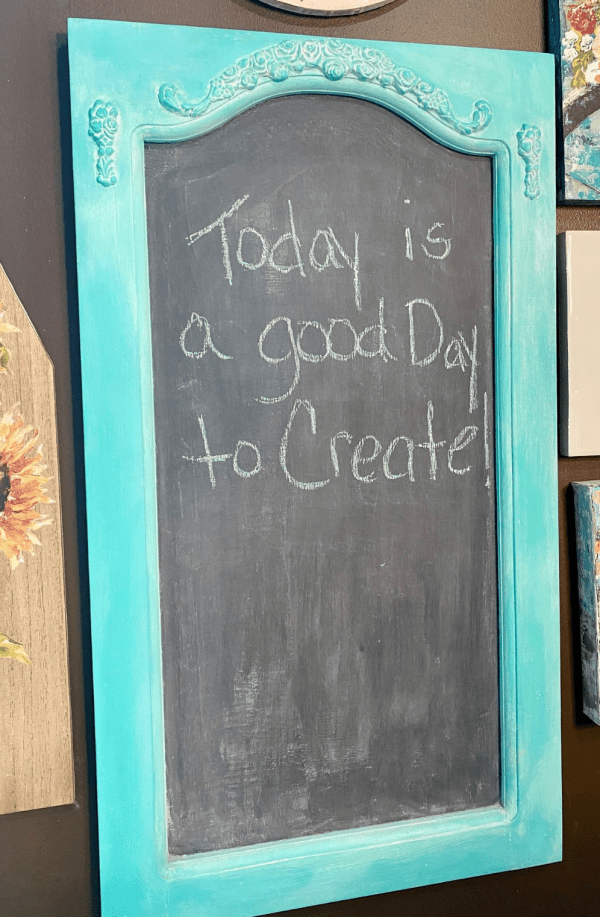 Today is
a good Day
to Create!